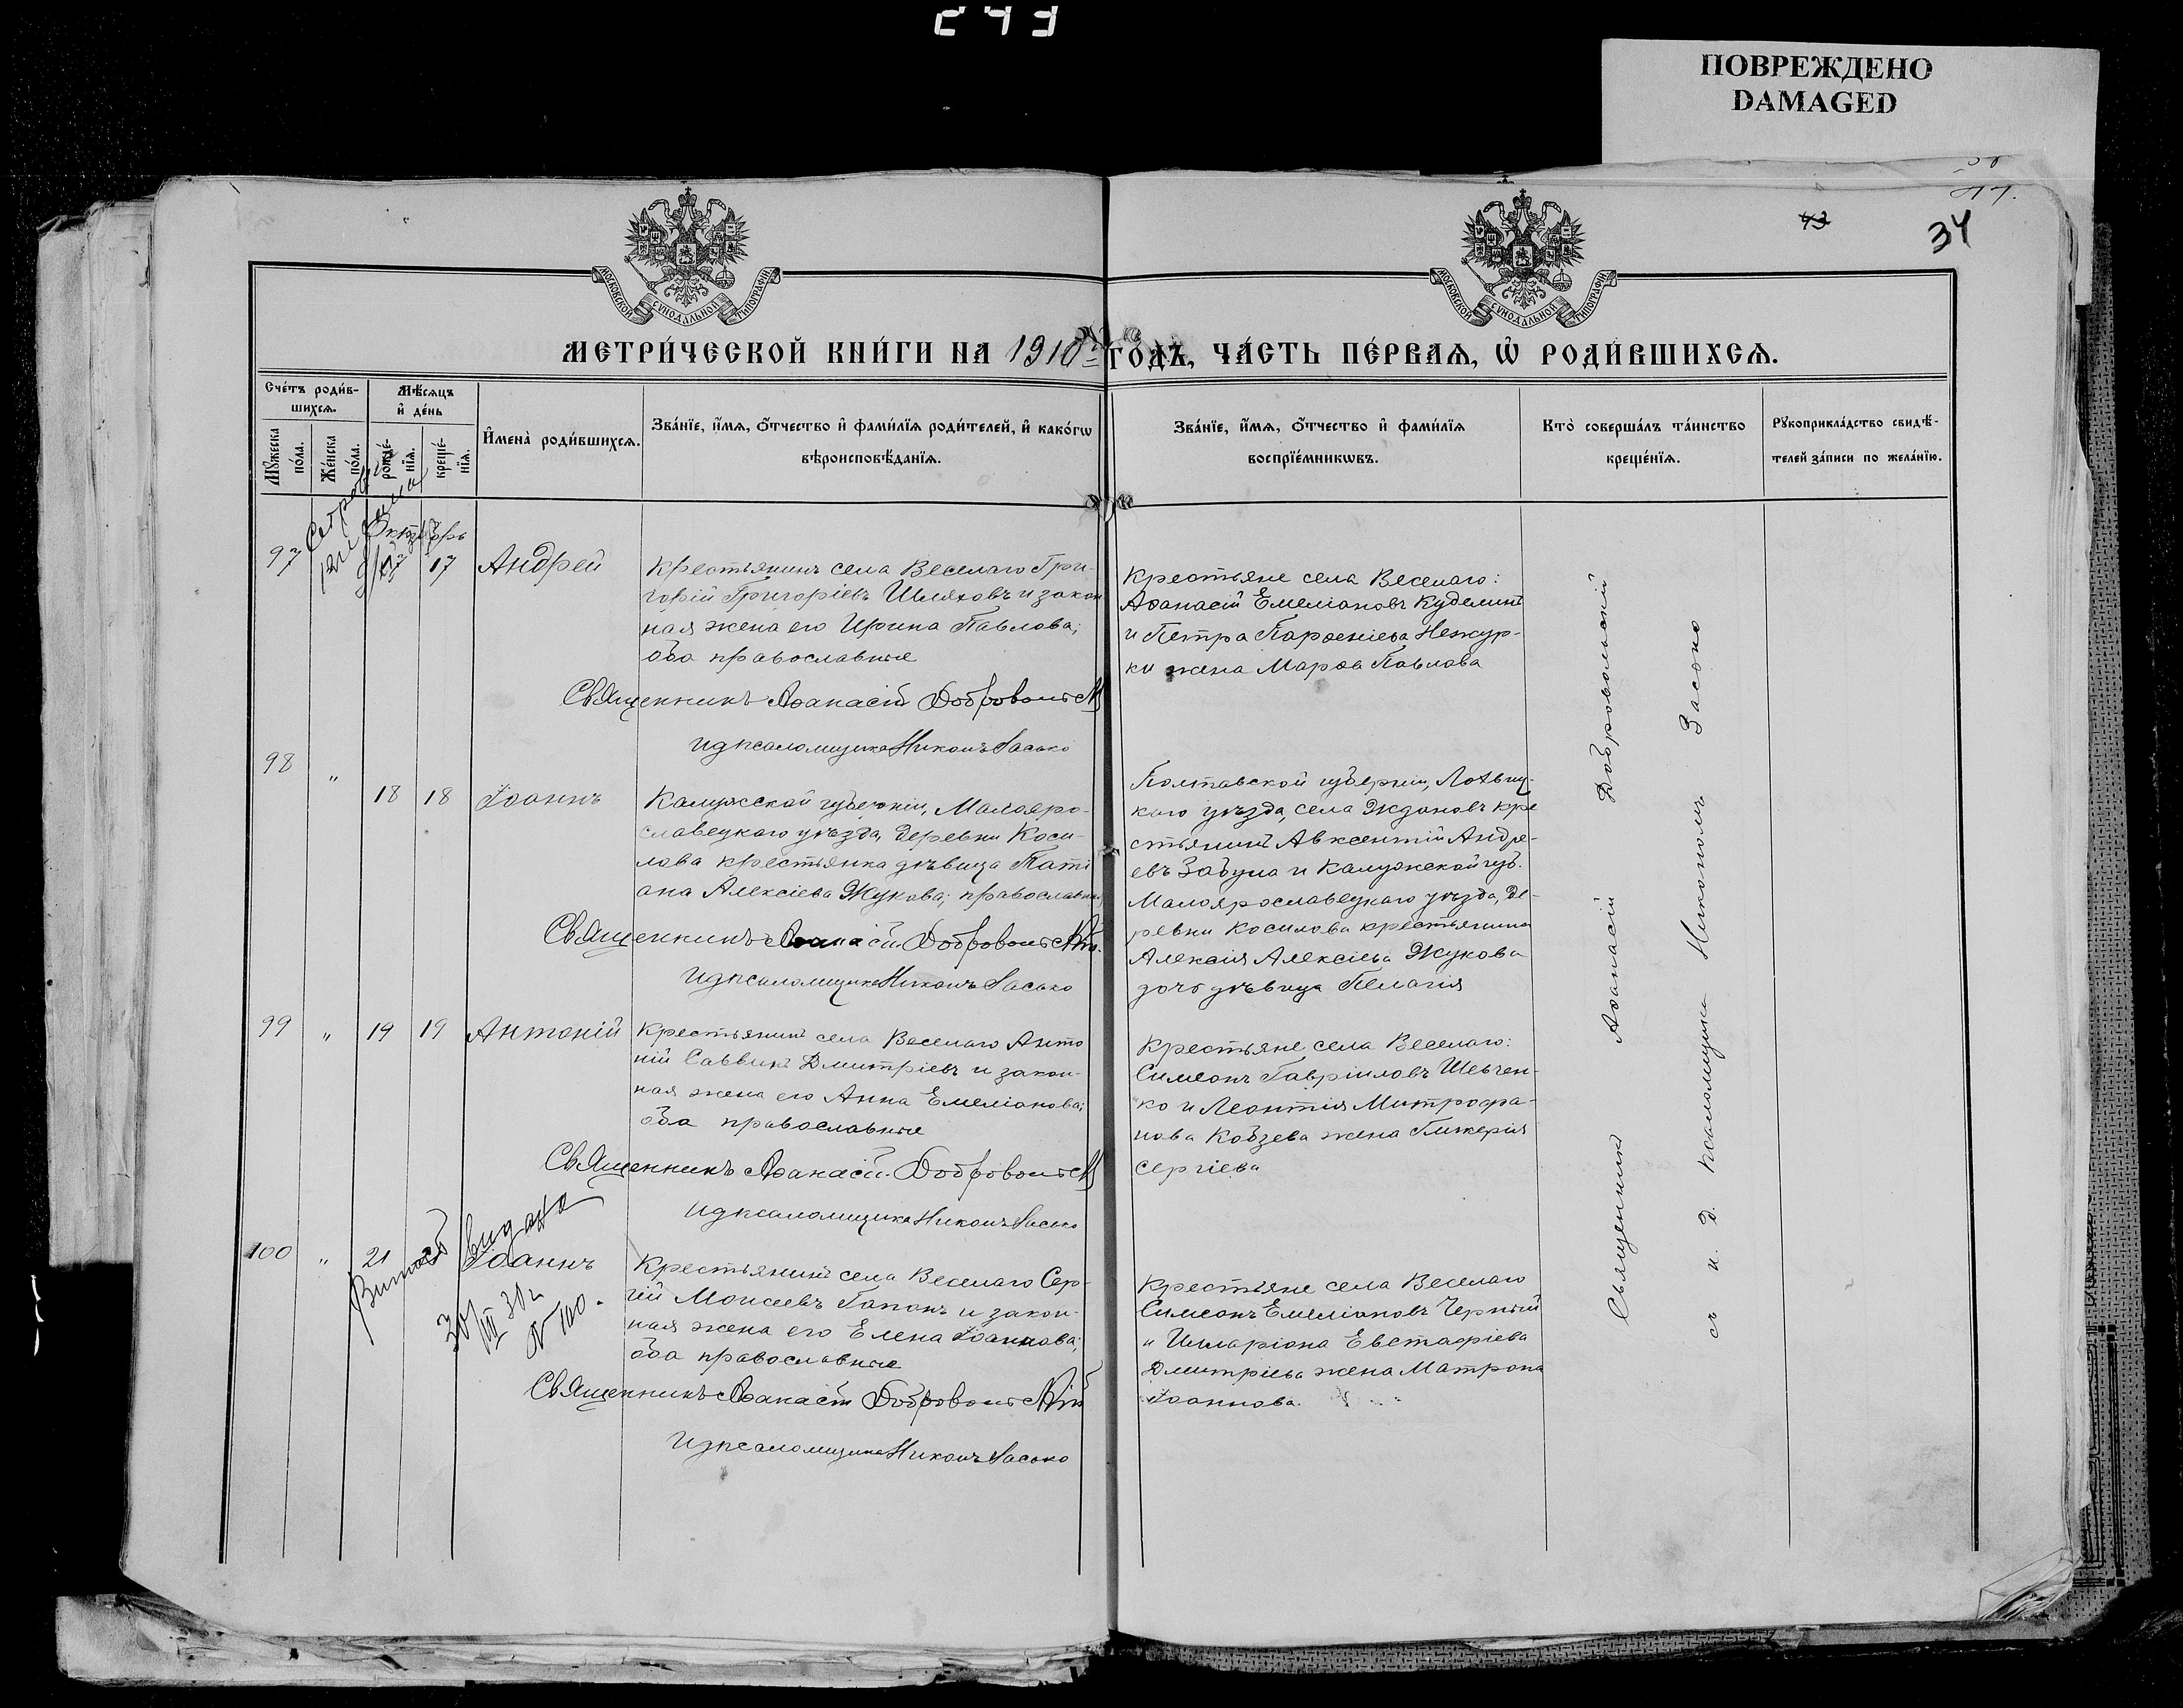 243
ПОВРЕЖДЕНО
DAMAGED
43
34
МОСКОВСКОЙ СУНОДАЛЬНОЙ ТИПОГРАФІИ
МОСКОВСКОЙ СУНОДАЛЬНОЙ ТИПОГРАФІИ
МЕТРИ́ЧЕСКОЙ КНИ́ГИ НА 1910 ГО́ДЪ, ЧА́СТЬ ПЕ́РВАѦ, Ѡ҆ РОДИ́ВШИХСѦ.
Сче́тъ роди́в-
шихсѧ.
Мѣ́сѧцъ
и҆ де́нь
Мꙋ́жеска
по́ла.
Же́нска
по́ла.
рожде́-
нїѧ.
креще́-
нїѧ.
И҆мена̀ роди́вшихсѧ.
Зва́нїе, и҆́мѧ, ѻ҆́тчество и҆ фами́лїѧ роди́телей, и҆ како́гѡ
вѣроисповѣ́данїѧ.
Зва́нїе, и҆́мѧ, ѻ҆́тчество и҆ фами́лїѧ
воспрїе́мникѡвъ.
Кто̀ соверша́лъ та́инство
креще́нїѧ.
Рꙋкоприкла́дство свидѣ́-
телей за́писи по жела́нїю.
Октябрь
97
17
Андрей
Крестьянинъ села Веселаго Гри-
горій Григоріевъ Шляховъ и закон
ная жена его Ирина Павлова;
оба православные
Священникъ Аѳанасій Добровольскій
И д псаломщика Никонъ Засько
Крестьяне села Веселаго:
Аѳанасій Емеліановъ Куделинъ
и Петра Парѳеніева Нежур-
ки жена Марѳа Павлова
98 " 18 18 Іоаннъ
Калужской губерніи, Малояро-
славецкаго уѣзда, деревни Коси-
лова крестьянка дѣвица Тати
ана Алексіева Жукова; православная
Священникъ Аѳанасій Добровольскій
И д псаломщика Никонъ Засько
Полтавской губерніи, Лохвиц-
каго уѣзда, села Ждановъ кре
стьянинъ Авксентій Андре-
евъ Забула и Калужской губ.
Малоярославецкаго уѣзда, де-
ревни Косилова крестьянина
Алексія Алексіева Жукова
дочь дѣвица Пелагія
99 " 19 19 Антоній
Крестьянинъ села Веселаго Анто
ній Саввинъ Дмитріевъ и закон-
ная жена его Анна Емеліанова;
оба православные
Священникъ Аѳанасій Добровольскій
И д псаломщика Никонъ Засько
Крестьяне села Веселаго:
Симеонъ Гавріиловъ Шевчен-
ко и Леонтія Митрофа-
нова Кобзева жена Гликерія
Сергіева
100 " 21
Іоаннъ
видано
30/III 31 г
№ 100.
Крестьянинъ села Веселаго Сер-
гій Моисеевъ Гапонъ и закон-
ная жена его Елена Іоаннова;
оба православные
Священникъ Аѳанасій Добровольскій
И д псаломщика Никонъ Засько
Крестьяне села Веселаго
Симеонъ Емеліановъ Черный
и Иларіона Евстафіева
Дмитріева жена Матрона
Іоаннова.
Священникъ Аѳанасій Добровольскій
съ и. д. псаломщика Никономъ Засько